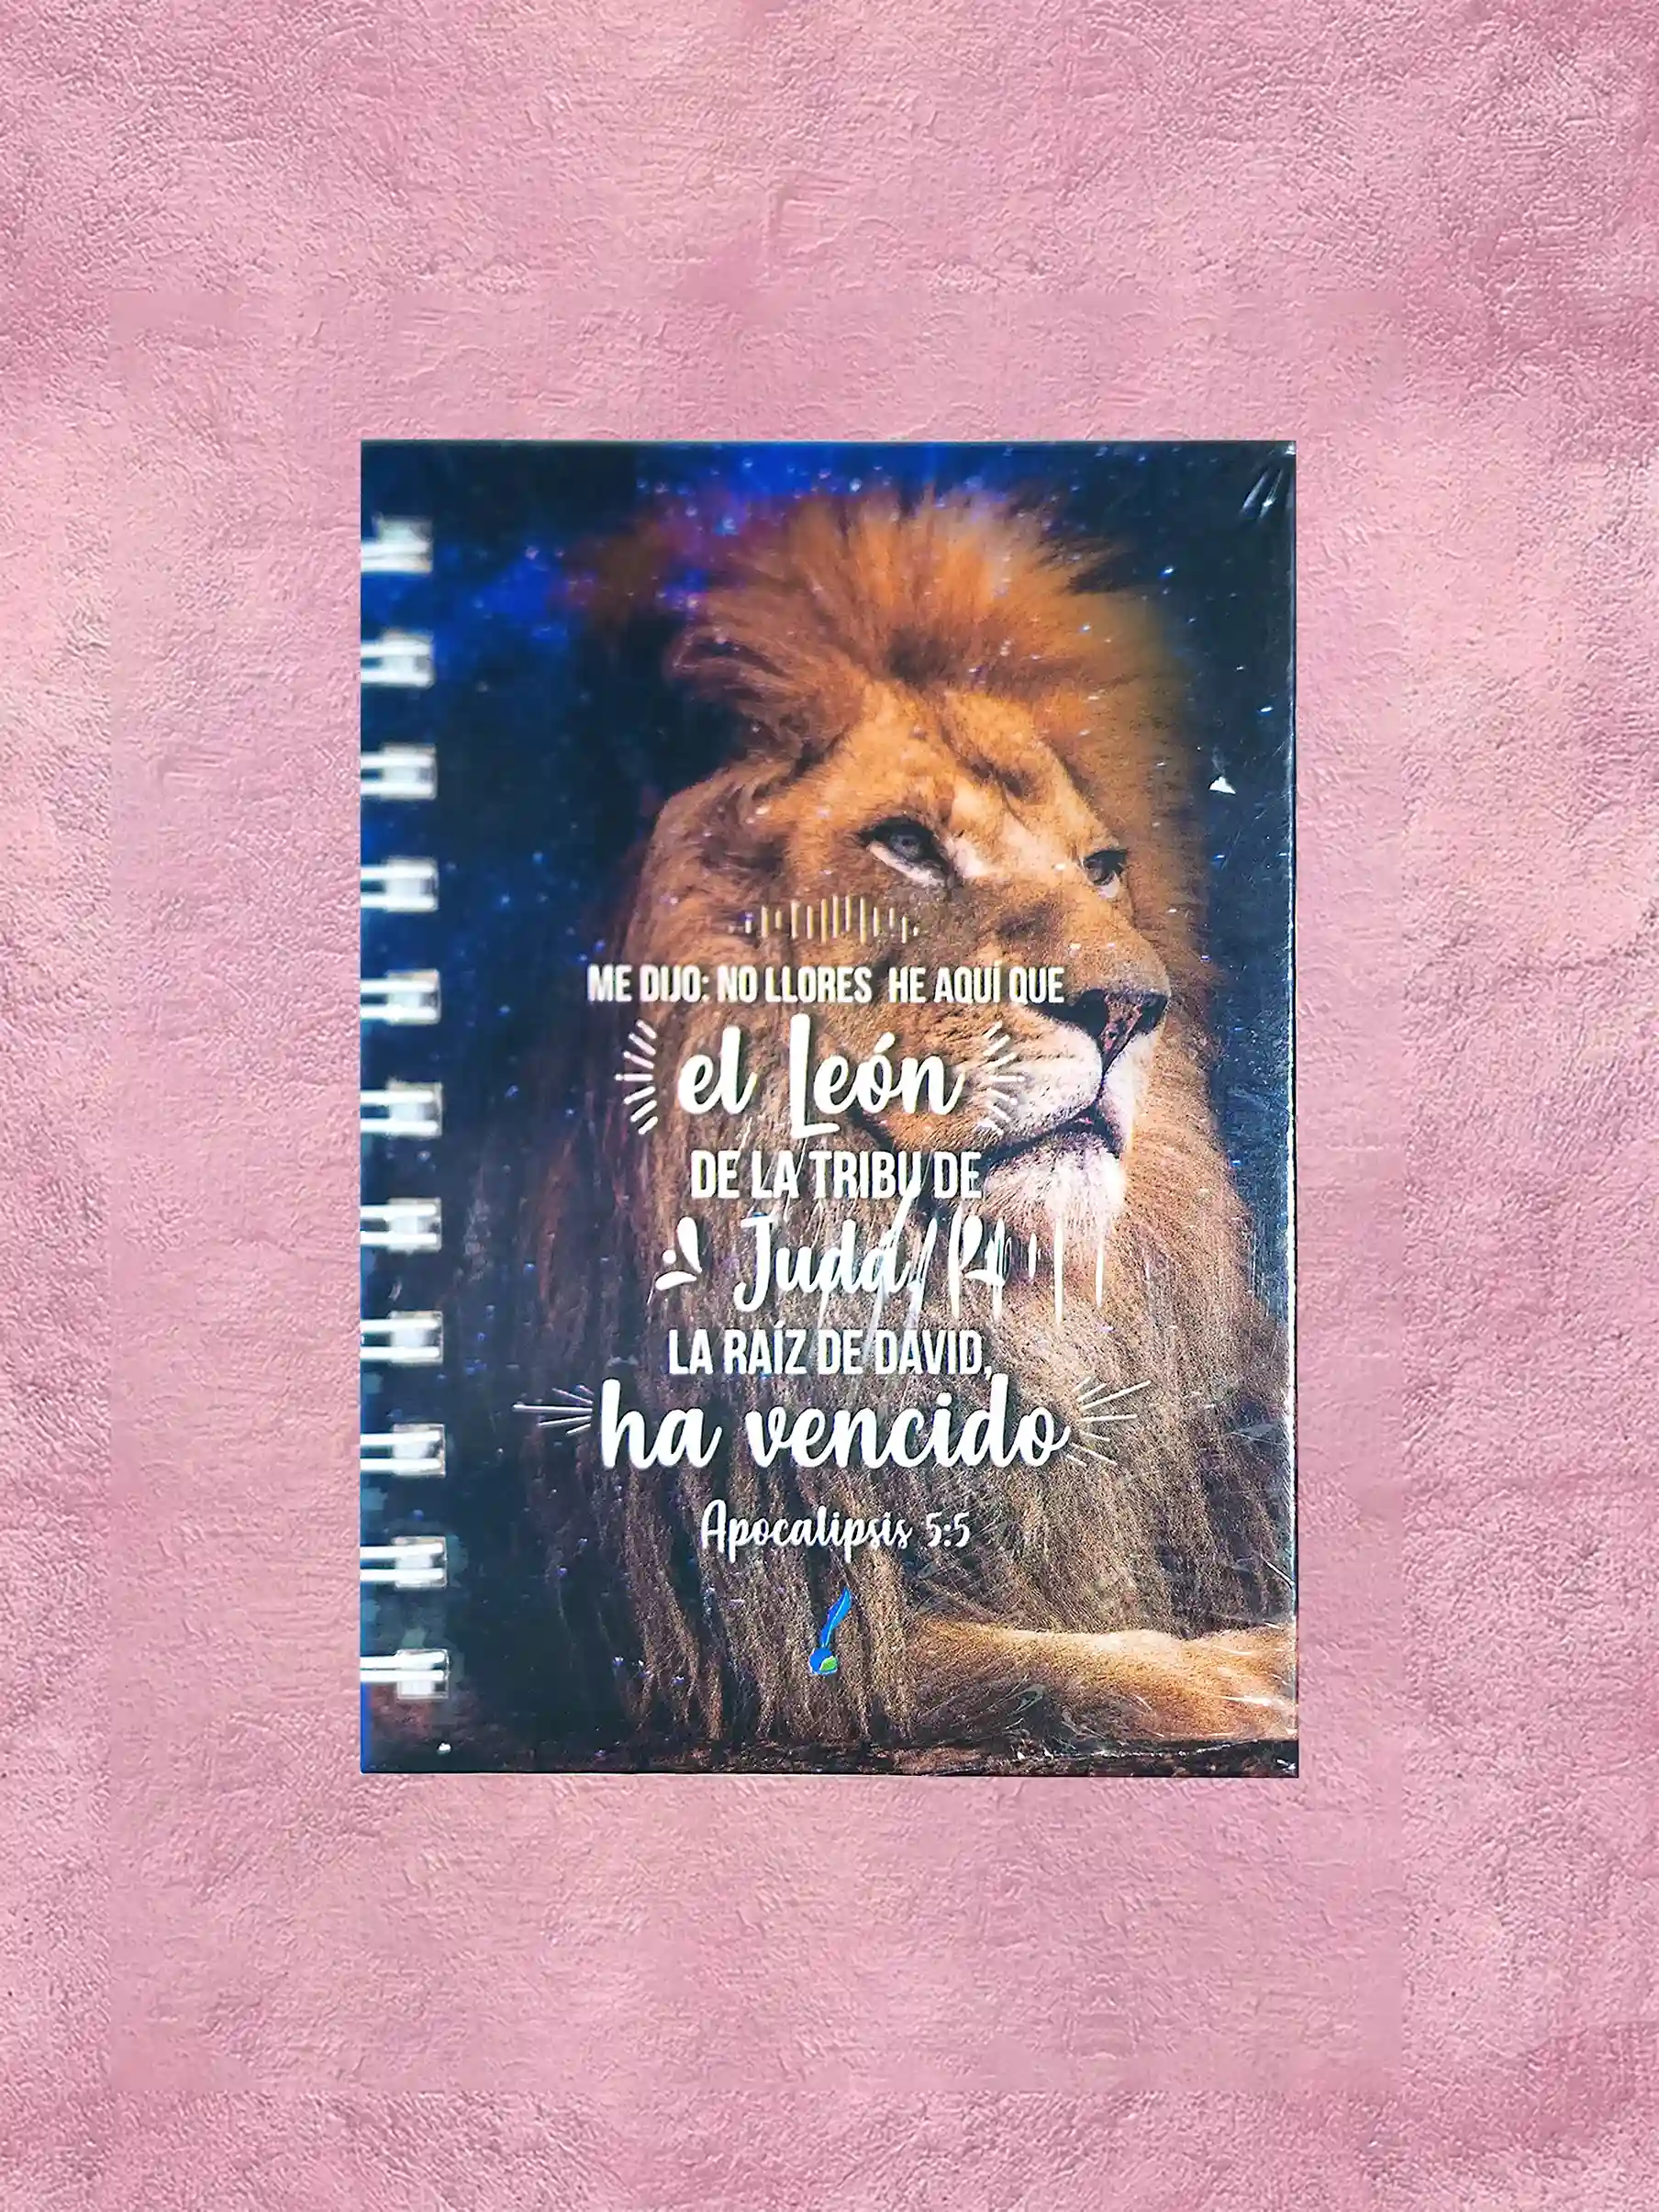 ME DIJO: NO LLORES HE AQUÍ QUE
el León
DE LA TRIBU DE
Judá,
LA RAÍZ DE DAVID,
ha vencido
Apocalipsis 5:5